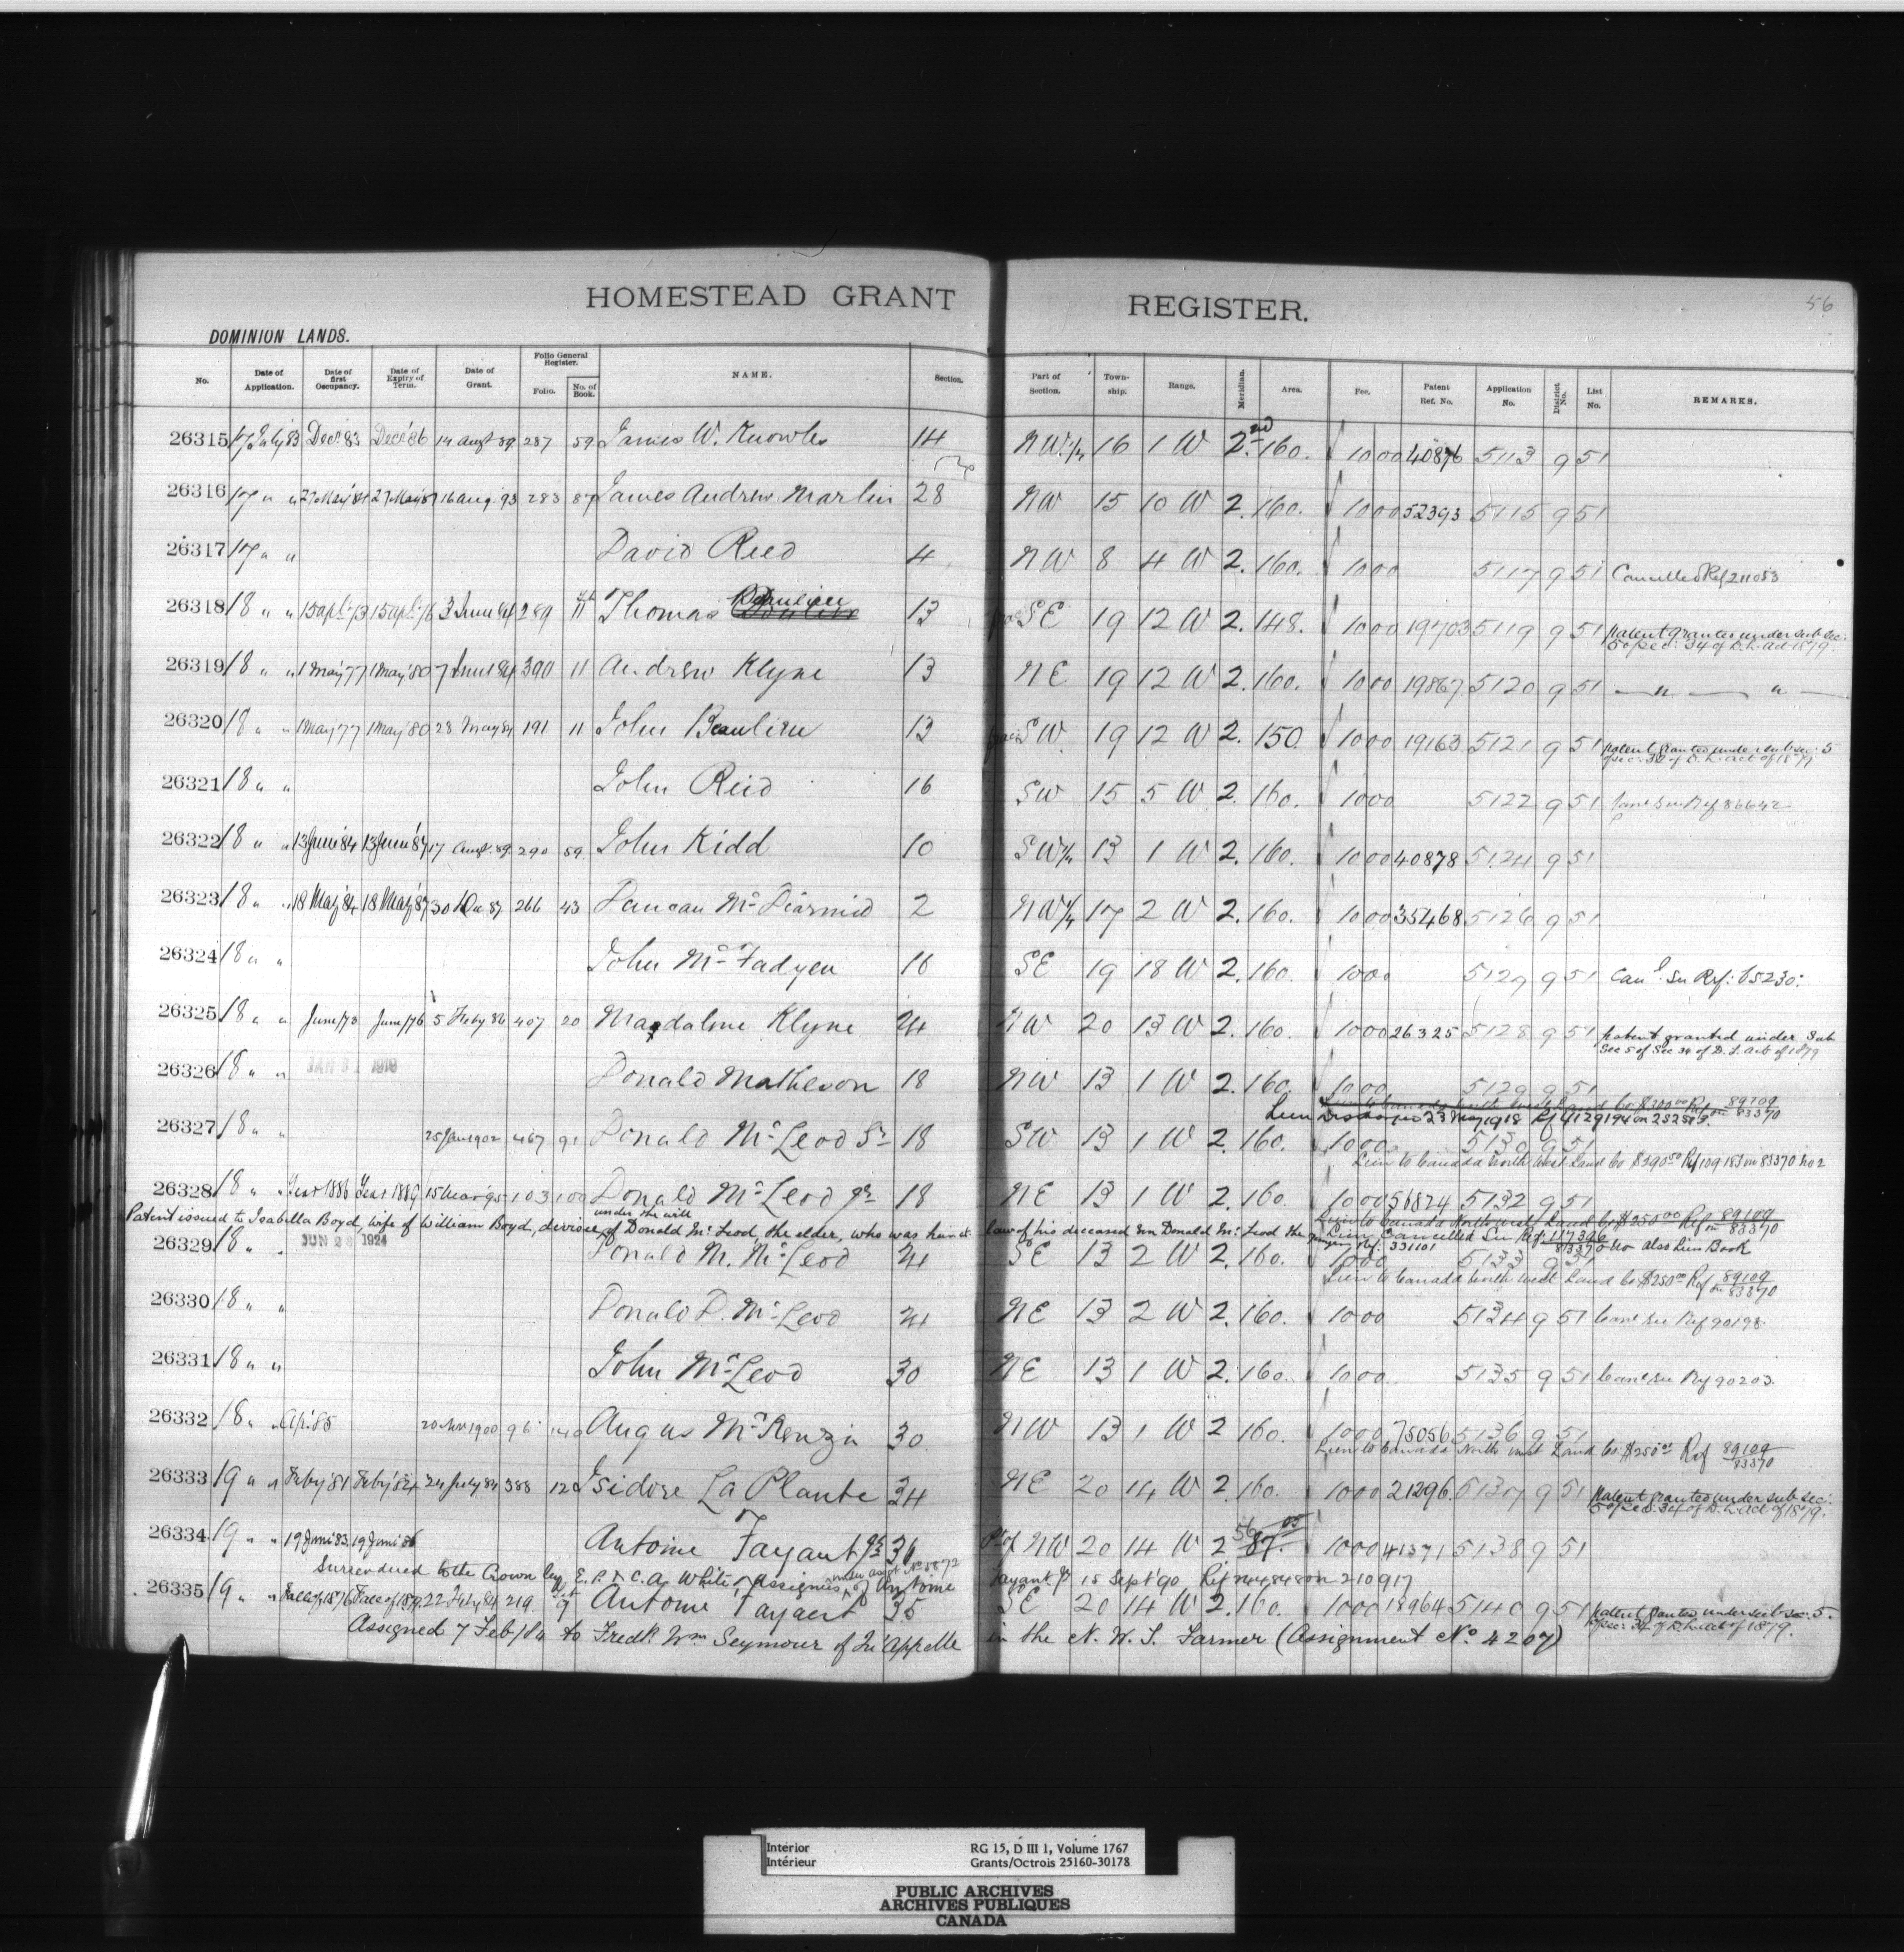 HOMESTEAD GRANT REGISTER.
56
DOMINION LANDS.
No. Date of Application. Date of first Occupancy. Date of Expiry of Term. Date of Grant. Folio General Register. Folio. No. of Book. NAME. Section. Part of Section. Township. Range. Meridian. Area. Fee. Patent Ref. No. Application No. District No. List No. REMARKS.
26315 17 July 83 Decr 83 Decr 86 14 augt 89 287 59 James W. Knowles 14 NW 1/4 16 1 W 2nd 160. 10 00 40876 5113 9 51
26316 17 " " 27 May 84 27 May 87 16 aug. 93 283 87 James Andrew Martin 28 NW 15 10 W 2. 160. 10 00 52393 5115 9 51
26317 17 " " David Reed 4 NW 8 4 W 2. 160. 10 00 5117 9 51 Cancelled Ref 211053
26318 18 " " 15 apl 73 15 apl 76 3 June 84 289 11 Thomas Beaulieu 13 SE 19 12 W 2. 148. 10 00 19703 5119 9 51 patent granted under sub sec:
5 of sec: 34 of D. L. act 1879.
26319 18 " " 1 May 77 1 May 80 7 June 84 390 11 Andrew Klyne 13 NE 19 12 W 2. 160. 10 00 19867 5120 9 51 " "
26320 18 " " 1 May 77 1 May 80 28 May 84 191 11 John Beaulieu 13 SW 19 12 W 2. 150 10 00 19163 5121 9 51 patent granted under sub sec: 5
of sec: 34 of D. L. act of 1879
26321 18 " " John Reid 16 SW 15 5 W 2. 160. 10 00 5122 9 51 Cancl see Ref 86642
26322 18 " " 13 June 84 13 June 87 17 augt. 89 290 59. John Kidd 10 SW 1/4 13 1 W 2. 160. 10 00 40878 5124 9 51
26323 18 " " 18 May 84 18 May 87 30 Dec 87 266 43 Duncan McDiarmid 2 NW 1/4 17 2 W 2. 160. 10 00 35468 5126 9 51
26324 18 " " John McFadyen 16 SE 19 18 W 2. 160. 10 00 5127 9 51 Canl. See Ref: 65230.
26325 18 " " June/73 June/76 5 Feby 86 407 20 Magdaline Klyne 24 NW 20 13 W 2. 160. 10 00 26325 5128 9 51 patent granted under Sub
Sec 5 of Sec 34 of D. L. Act of 1879
26326 18 " " JAN 31 1919 Donald Matheson 18 NW 13 1 W 2. 160. 10 00 5129 9 51
Lien to Canada North West Land Co $200 00 Ref 89109 on 83370
Lien Discharged 23 May 1918 Ref 4129194 on 232513.
26327 18 " " 25 Jan 1902 467 91 Donald McLeod Sr 18 SW 13 1 W 2. 160. 10 00 5130 9 51
Lien to Canada North West Land Co $390 00 Ref 109183 on 83370 No 2
26328 18 " " Year 1886 Year 1889 15 Mar 95 103 100 Donald McLeod Jr 18 NE 13 1 W 2. 160. 10 00 56874 5132 9 51
Lien to Canada North West Land Co $250 00 Ref 89109 on 83370
Patent issued to Isabella Boyd, wife of William Boyd, devisee under the will of Donald McLeod, the elder, who was heir at law of his deceased son Donald McLeod the younger Ref: 331101
Lien Cancelled See Ref: 117396 83370 No also Lien Book
26329 18 " " JUN 28 1924 Donald M. McLeod 24 SE 13 2 W 2. 160. 10 00 5133 9 51
Lien to Canada North West Land Co $250 00 Ref 89109 on 83370
26330 18 " " Donald D. McLeod 24 NE 13 2 W 2. 160. 10 00 5134 9 51 Cancl see Ref 90198
26331 18 " " John McLeod 30 NE 13 1 W 2. 160. 10 00 5135 9 51 Cancl see Ref 90203.
26332 18 " " Ap. 85 20 Nov 1900 96 140 Angus McKenzie 30 NW 13 1 W 2 160. 10 00 75056 5136 9 51
Lien to Canada North West Land Co. $250 00 Ref 89109 83370
26333 19 " " Feby '81 Feby '84 24 July 84 388 12 Isidore La Plante 34 NE 20 14 W 2. 160. 10 00 21296. 5137 9 51 patent granted under sub sec:
5 of sec: 34 of D. L. act of 1879.
26334 19 " " 19 June 83 19 June 86 Antoine Fayant Jr 36 Pt of NW 20 14 W 2 56 87. 10 00 41371 5138 9 51
Surrendered to the Crown by E. P. & C. A. White, Assignees under asst No 5872 of Antoine Fayant Jr 15 Sept '90 Ref No 248480 on 210917
26335 19 " " Fall of 1876 Fall of 1879 22 Feby 84 219 9 Antoine Fayant 35 SE 20 14 W 2. 160. 10 00 18964 5140 9 51 patent granted under sub sec: 5.
of sec: 34 of D. L. act of 1879.
Assigned 7 Feb/84 to Fredk. Wm Seymour of Qu'Appelle in the N. W. T. Farmer (Assignment No. 4207)
Interior RG 15, D III 1, Volume 1767
Intérieur Grants/Octrois 25160-30178
PUBLIC ARCHIVES
ARCHIVES PUBLIQUES
CANADA